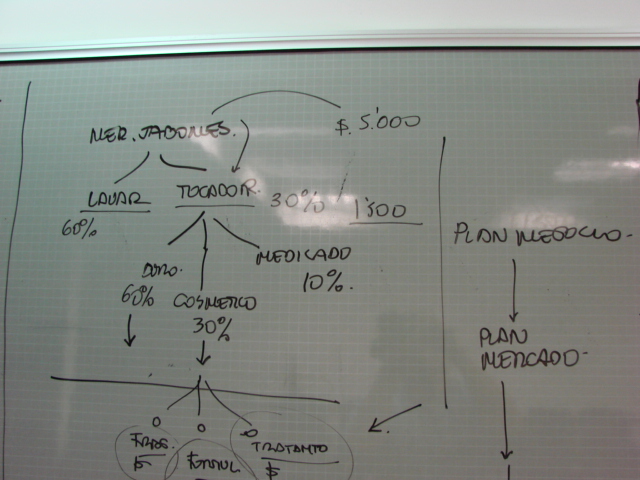 MER. JABONES.
$. 5'000
LAVAR
60%
TOCADOR.
30%
1'500
60%
COSMETICO
30%
MEDICADO
10%.
TRATANTO
$
PLAN NEGOCIO-
PLAN
MERCADO-